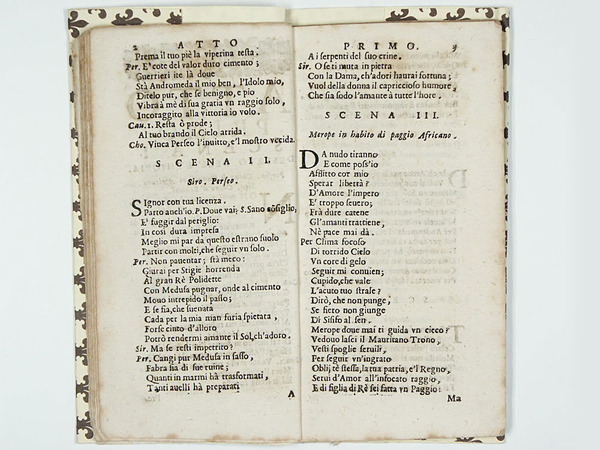 2 ATTO
Prema il tuo piè la viperina testa.
Per. E'cote del valor duro cimento;
Guerrieri ite là doue
Stà Andromeda il mio ben, l'Idolo mio,
Ditelo pur, che se benigno, e pio
Vibra à mè di sua gratia vn raggio solo,
Incoraggito alla vittoria io volo.
Cau. 1. Resta ò prode;
Al tuo brando il Cielo arrida.
Cho. Vinca Perseo l'inuitto, e'l mostro vccida.
SCENA II.
Siro. Perseo.
SIgnor con tua licenza.
Parto anch'io. P. Doue vai; S. Sano cõsiglio,
E' fuggir dal periglio:
In così dura impresa
Meglio mi par da questo estrano suolo
Partir con molti, che seguir vn solo.
Per. Non pauentar; stà meco:
Giurai per Stigie horrenda
Al gran Rè Polidette
Con Medusa pugnar, onde al cimento
Mouo intrepido il passo;
E se fia, che suenata
Cada per la mia man furia spietata,
Forse cinto d'alloro
Potrò rendermi amante il Sol, ch'adoro.
Sir. Ma se resti impetrito?
Per. Cangi pur Medusa in sasso,
Fabra sia di sue ruine;
Quanti in marmi hà trasformati,
Tanti auelli hà preparati
A
PRIMO. 9
A i serpenti del suo crine.
Sir. O se ti muta in pietra
Con la Dama, ch'adori haurai fortuna;
Vuol della donna il capriccioso humore,
Che sia sodo l'amante à tutte l'hore.
SCENA III.
Merope in habito di paggio Africano.
DA nudo tiranno
E come poss'io
Afflitto cor mio
Sperar libertà?
D'Amore l'impero
E' troppo seuero;
Frà dure catene
Gl'amanti trattiene,
Nè pace mai dà.
Per Clima focoso
Di torrido Cielo
Vn core di gelo
Seguir mi conuien;
Cupido, che vale
L'acuto tuo strale?
Dirò, che non punge,
Se fiero non giunge
Di Sisifo al sen.
Merope doue mai ti guida vn cieco?
Vedouo lasci il Mauritano Trono,
Vesti spoglie seruili,
Per seguir vn'ingrato
Oblij tè stessa, la tua patria, e'l Regno,
Serui d'Amor all'infocato raggio,
E di figlia di Rè sei fatta vn Paggio:
Ma